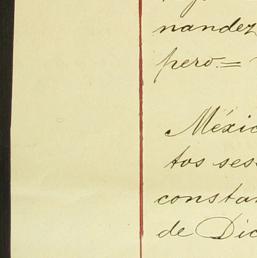 nandez
pero.=
Méxic
tos ses
constan
de Dic